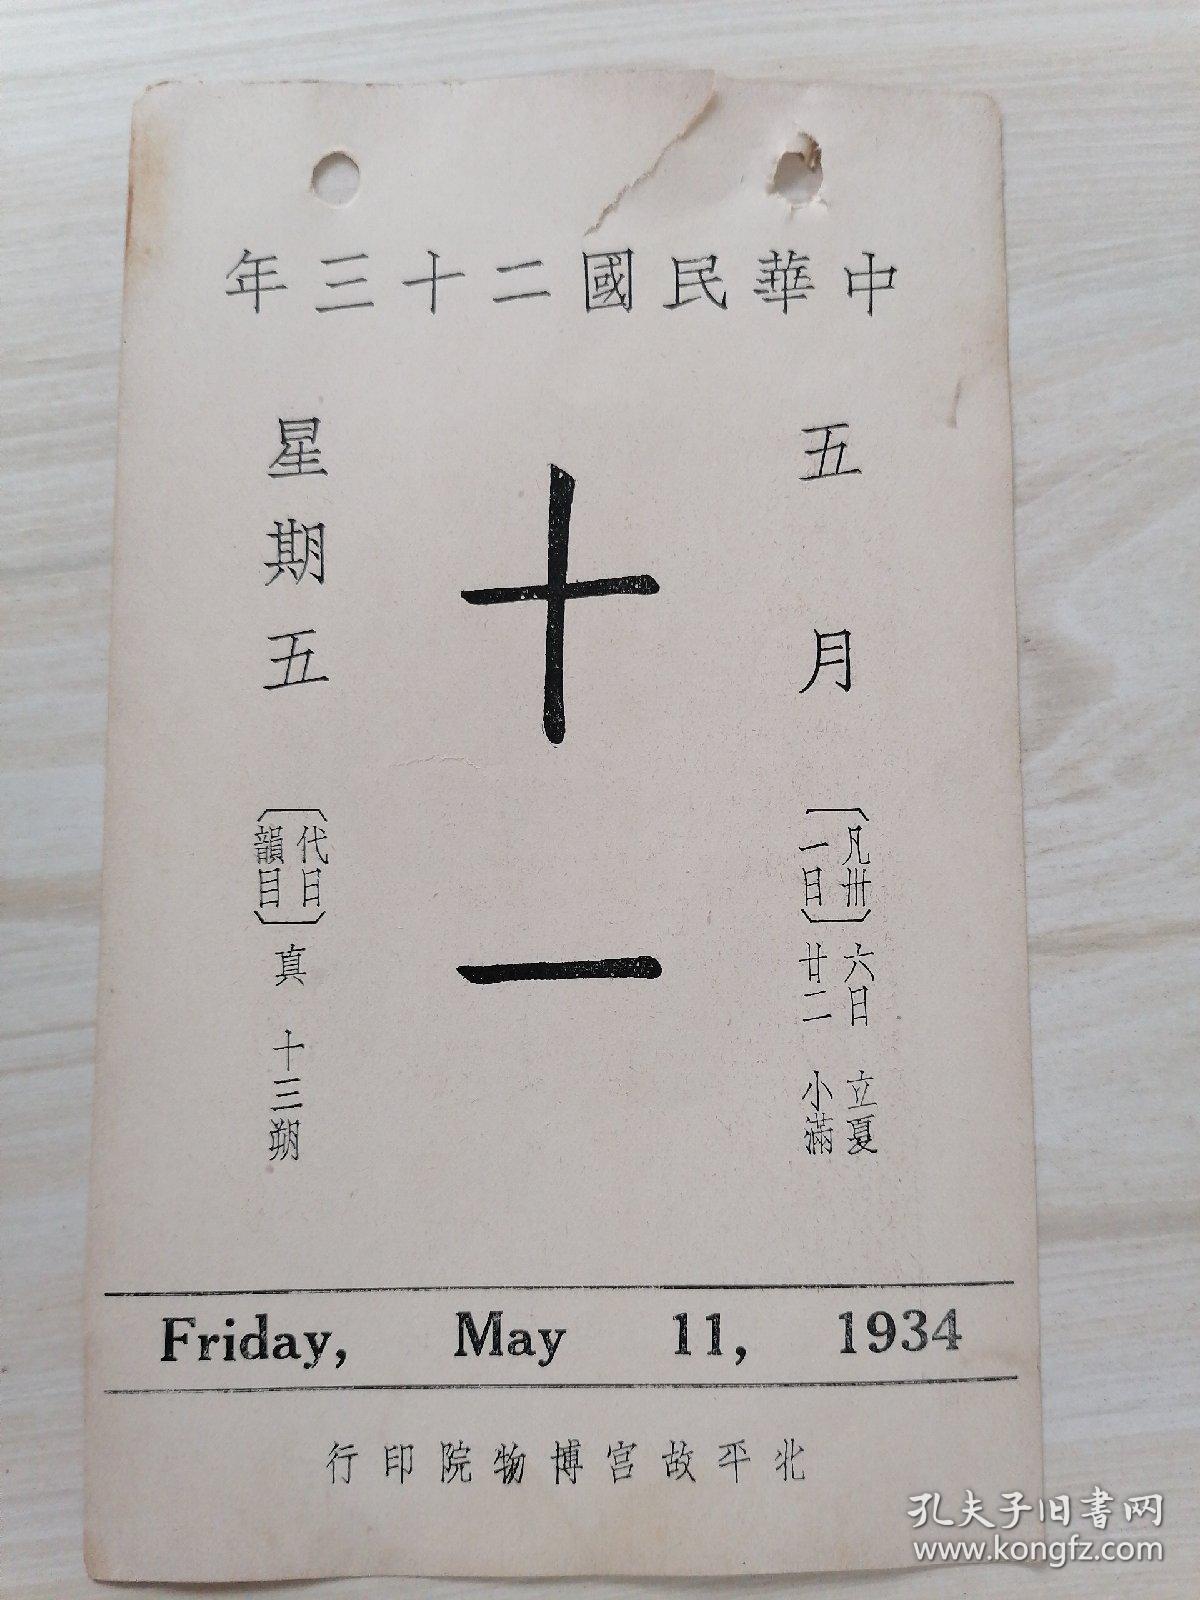 中華民國二十三年
五月
〔凡卅一日〕
六日 立夏
廿二 小滿
十一
星期五
〔代日韻目〕
真 十三朔
Friday, May 11, 1934
北平故宮博物院印行
孔夫子旧書网
www.kongfz.com